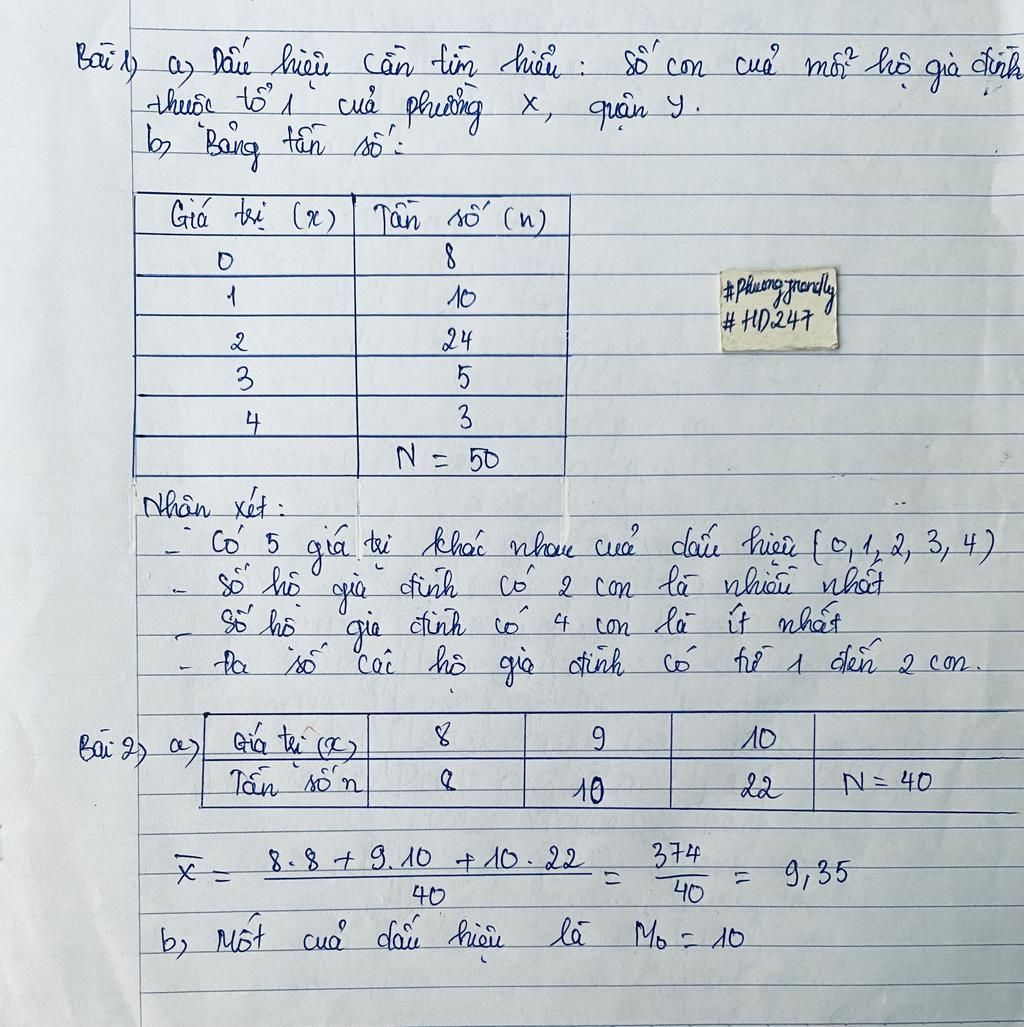 Bài 1) a) Dấu hiệu cần tìm hiểu : Số con của mỗi hộ gia đình
thuộc tổ 1 của phường X, quận Y.
b) Bảng tần số :
Giá trị (x) Tần số (n)
0 8
1 10
2 24
3 5
4 3
N = 50
#Phuongfrendly
#HD247
Nhận xét :
- Có 5 giá trị khác nhau của dấu hiệu (0, 1, 2, 3, 4)
- Số hộ gia đình có 2 con là nhiều nhất
- Số hộ gia đình có 4 con là ít nhất
- Đa số các hộ gia đình có từ 1 đến 2 con.
Bài 2) a) Giá trị (x) 8 9 10
Tần số n 8 10 22 N = 40
x̄ = (8.8 + 9.10 + 10.22)/40 = 374/40 = 9,35
b) Mốt của dấu hiệu là M₀ = 10